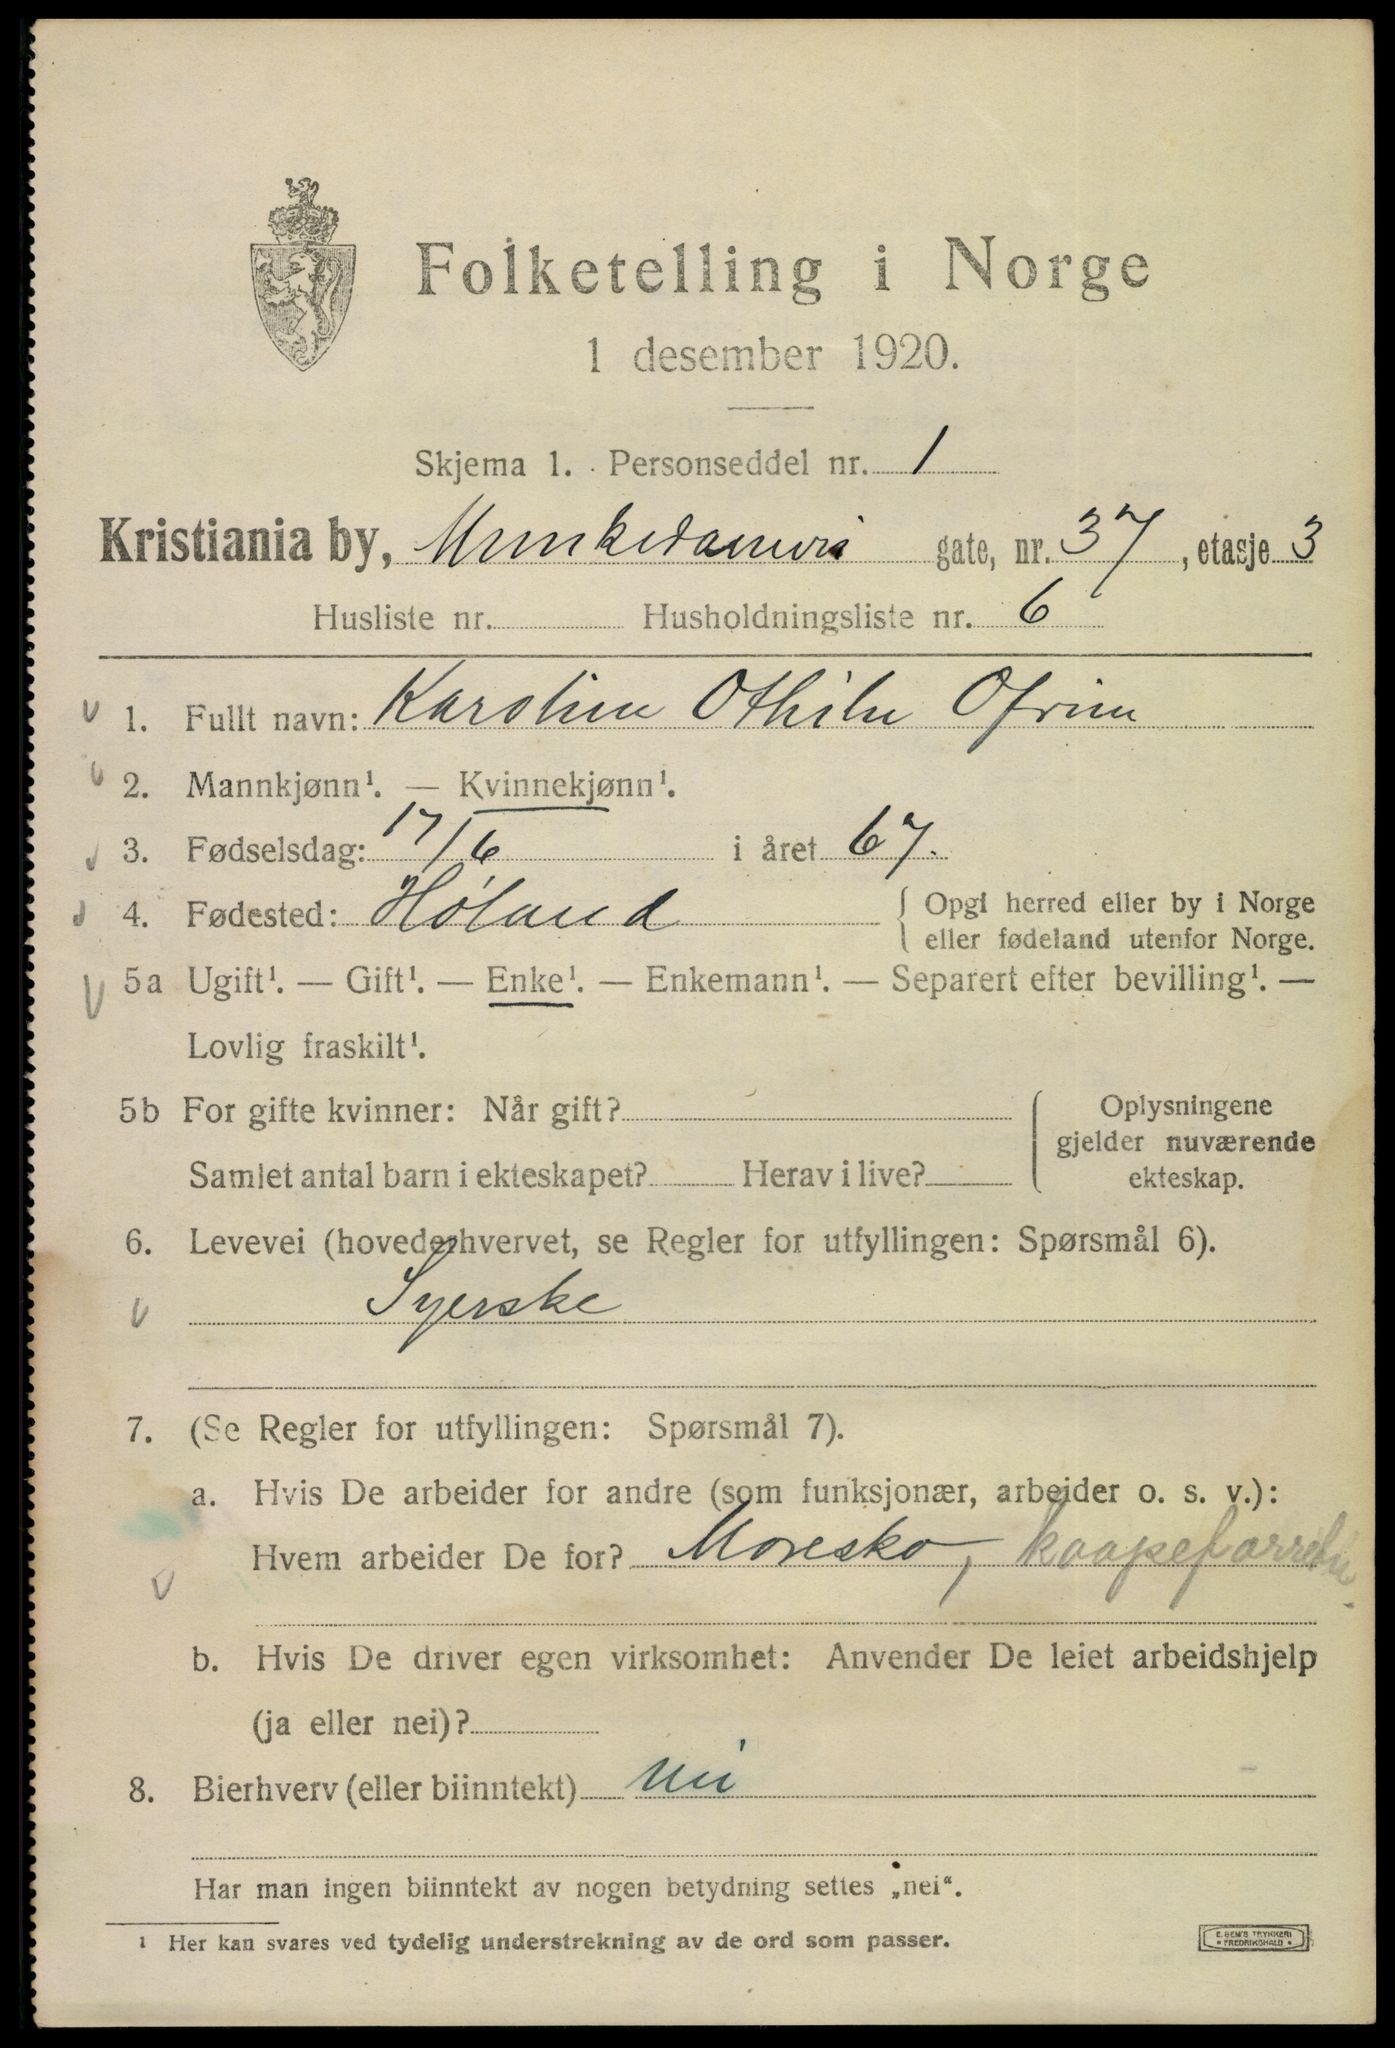 Folketelling i Norge
1 desember 1920.
Skjema 1. Personseddel nr. 1
Kristiania by, Munkedamsvei gate, nr. 37, etasje 3
Husliste nr. Husholdningsliste nr. 6
1. Fullt navn: Karoline Othilie
2. Mannkjønn¹. — Kvinnekjønn¹.
3. Fødselsdag: 17/6 i året 67.
4. Fødested: Høland { Opgi herred eller by i Norge
eller fødeland utenfor Norge.
5a Ugift¹. — Gift¹. — Enke¹. — Enkemann¹. — Separert efter bevilling¹. —
Lovlig fraskilt¹.
5b For gifte kvinner: Når gift? { Oplysningene
gjelder nuværende
Samlet antal barn i ekteskapet? Herav i live? ekteskap.
6. Levevei (hovederhvervet, se Regler for utfyllingen: Spørsmål 6).
Syerske
7. (Se Regler for utfyllingen: Spørsmål 7).
a. Hvis De arbeider for andre (som funksjonær, arbeider o. s. v.):
Hvem arbeider De for? Moresko,
b. Hvis De driver egen virksomhet: Anvender De leiet arbeidshjelp
(ja eller nei)?
8. Bierhverv (eller biinntekt) nei
Har man ingen biinntekt av nogen betydning settes „nei“.
¹ Her kan svares ved tydelig understrekning av de ord som passer.
E. SEM'S TRYKKERI
* FREDRIKSHALD *